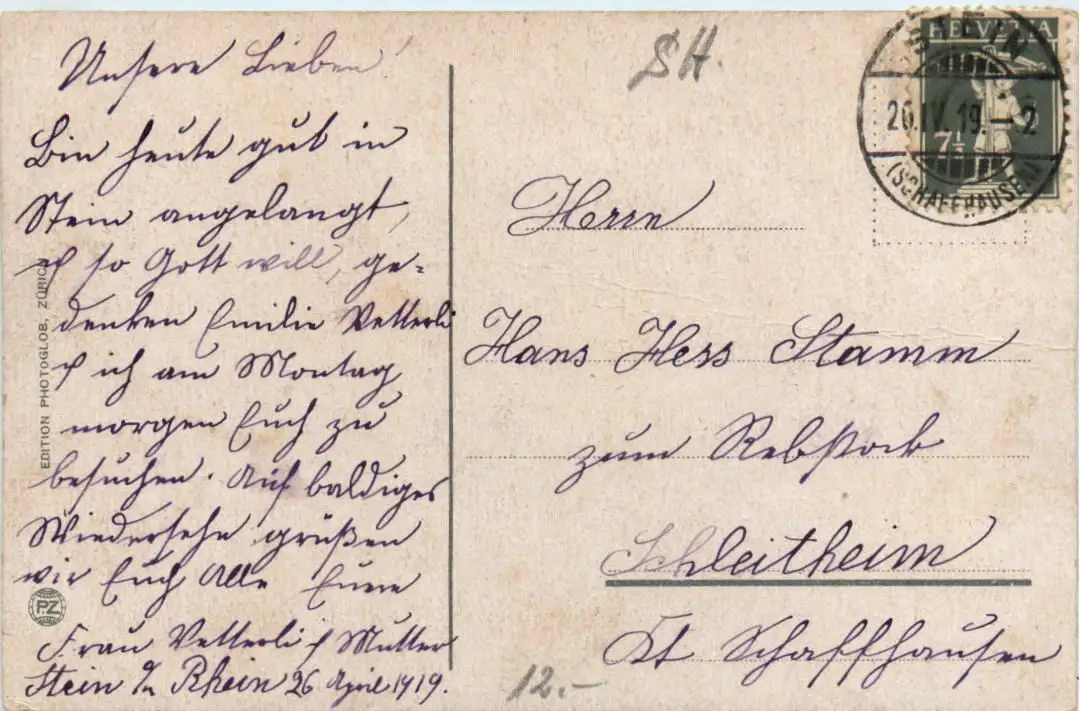 Unsere Lieben!
Bin heute gut in
Stein angelangt,
& so Gott will, ge-
denken Emilie Vetterli
& ich am Montag
morgen Euch zu
besuchen. Auf baldiges
Wiedersehn grüßen
wir Euch Alle Eure
Frau Vetterli & Mutter
Stein a/Rhein 26 April 1919.
EDITION PHOTOGLOB, ZÜRICH
PZ
SH.
HELVETIA
7½
STEIN
26.IV.19.–2
(SCHAFFHAUSEN)
Herrn
Hans Hess Stamm
zum Rebstock
Schleitheim
Kt Schaffhausen
12.–